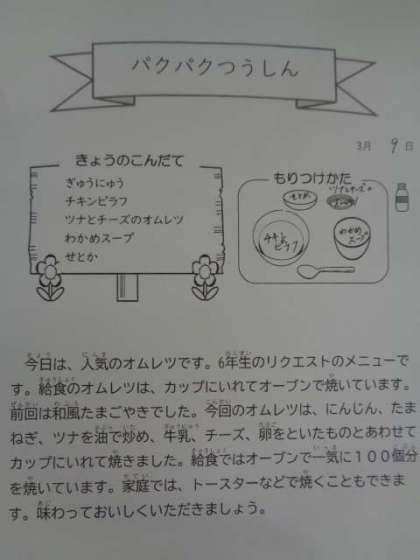 パクパクつうしん
3月 9日
きょうのこんだて
ぎゅうにゅう
チキンピラフ
ツナとチーズのオムレツ
わかめスープ
せとか
もりつけかた
せとか
ツナとチーズの
オムレツ
チキン
ピラフ
わかめ
スープ
今日は、人気のオムレツです。6年生のリクエストのメニューで
す。給食のオムレツは、カップにいれてオーブンで焼いています。
前回は和風たまごやきでした。今回のオムレツは、にんじん、たま
ねぎ、ツナを油で炒め、牛乳、チーズ、卵をといたものとあわせて
カップにいれて焼きました。給食ではオーブンで一気に100個分
を焼いています。家庭では、トースターなどで焼くこともできま
す。味わっておいしくいただきましょう。